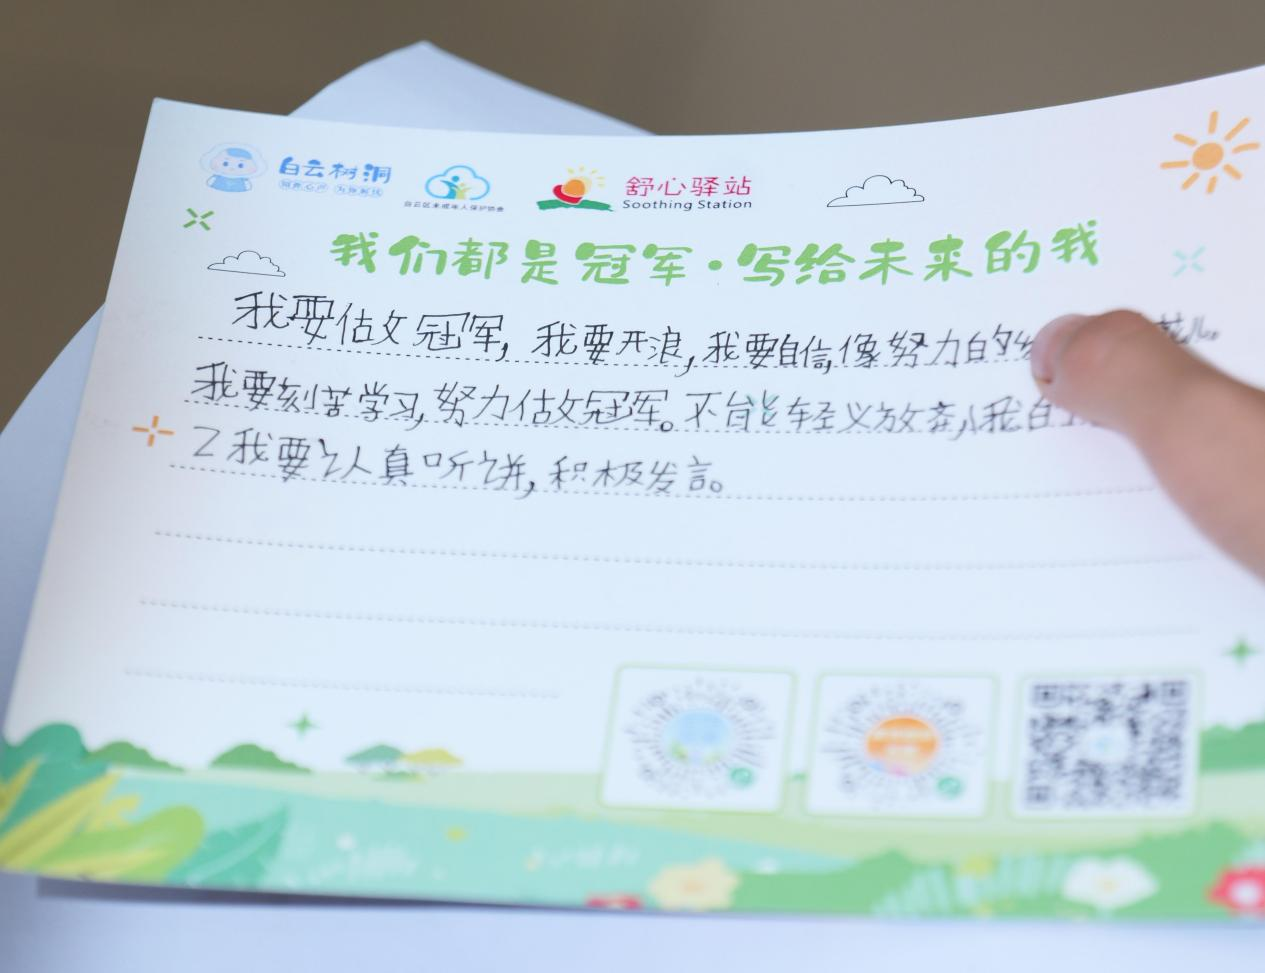 白云树洞
倾听心声 为你解忧
白云区未成年人保护协会
舒心驿站
Soothing Station
我们都是冠军·写给未来的我
我要估攵冠军,我要开浪,我要自信,像努力的
我要刻苦学习,努力估攵冠军。不能轻义放弃,
乙我要认真听讲,积极发言。